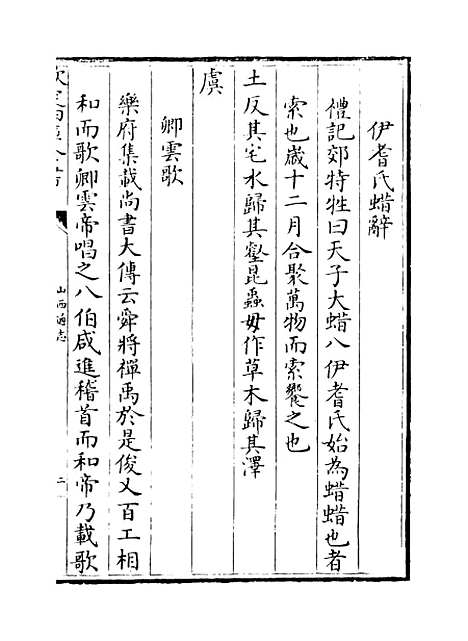 伊耆氏蜡辭
禮記郊特牲曰天子大蜡八伊耆氏始為蜡蜡也者
索也歲十二月合聚萬物而索饗之也
土反其宅水歸其壑昆蟲毋作草木歸其澤
虞
卿雲歌
樂府集載尚書大傳云舜將禪禹於是俊乂百工相
和而歌卿雲帝唱之八伯咸進稽首而和帝乃載歌
山西通志